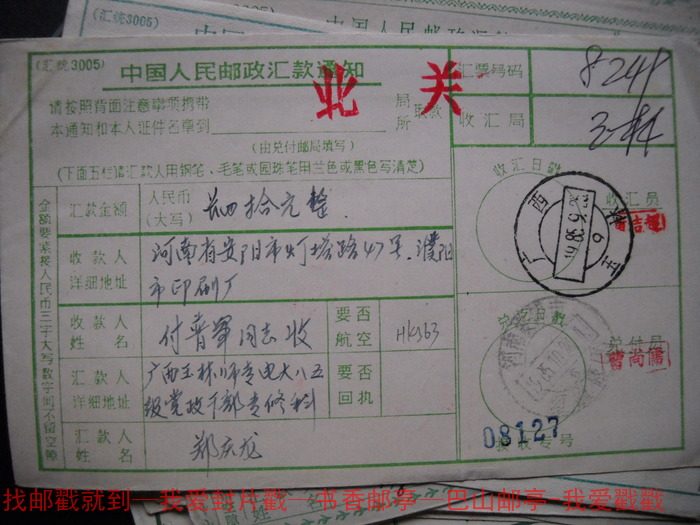 (汇统3005)
中国人民邮政汇款通知
北关
请按照背面注意事项携带
本通知和本人证件名章到
局
所
取款
(由兑付邮局填写)
(下面五栏请汇款人用钢笔、毛笔或园珠笔用兰色或黑色写清楚)
汇票号码
8248
收汇局
收汇日戳
收汇员
广西
玉林
金额要紧接人民币三字大写数字间不留空隙
汇款金额
人民币
(大写)
拾元整
收款人
详细地址
河南省贵阳市灯塔路47号.濮阳
市印刷厂
收款人
姓名
付普军同志收
要否
航空
HK363
汇款人
详细地址
广西玉林师专电大八五
级党政干部专修科
要否
回执
汇款人
姓名
郑庆龙
兑讫日戳
兑付员
曹尚儒
08127
接收专号
找邮戳就到—我爱封片戳—书香邮亭—巴山邮亭-我爱戳戳